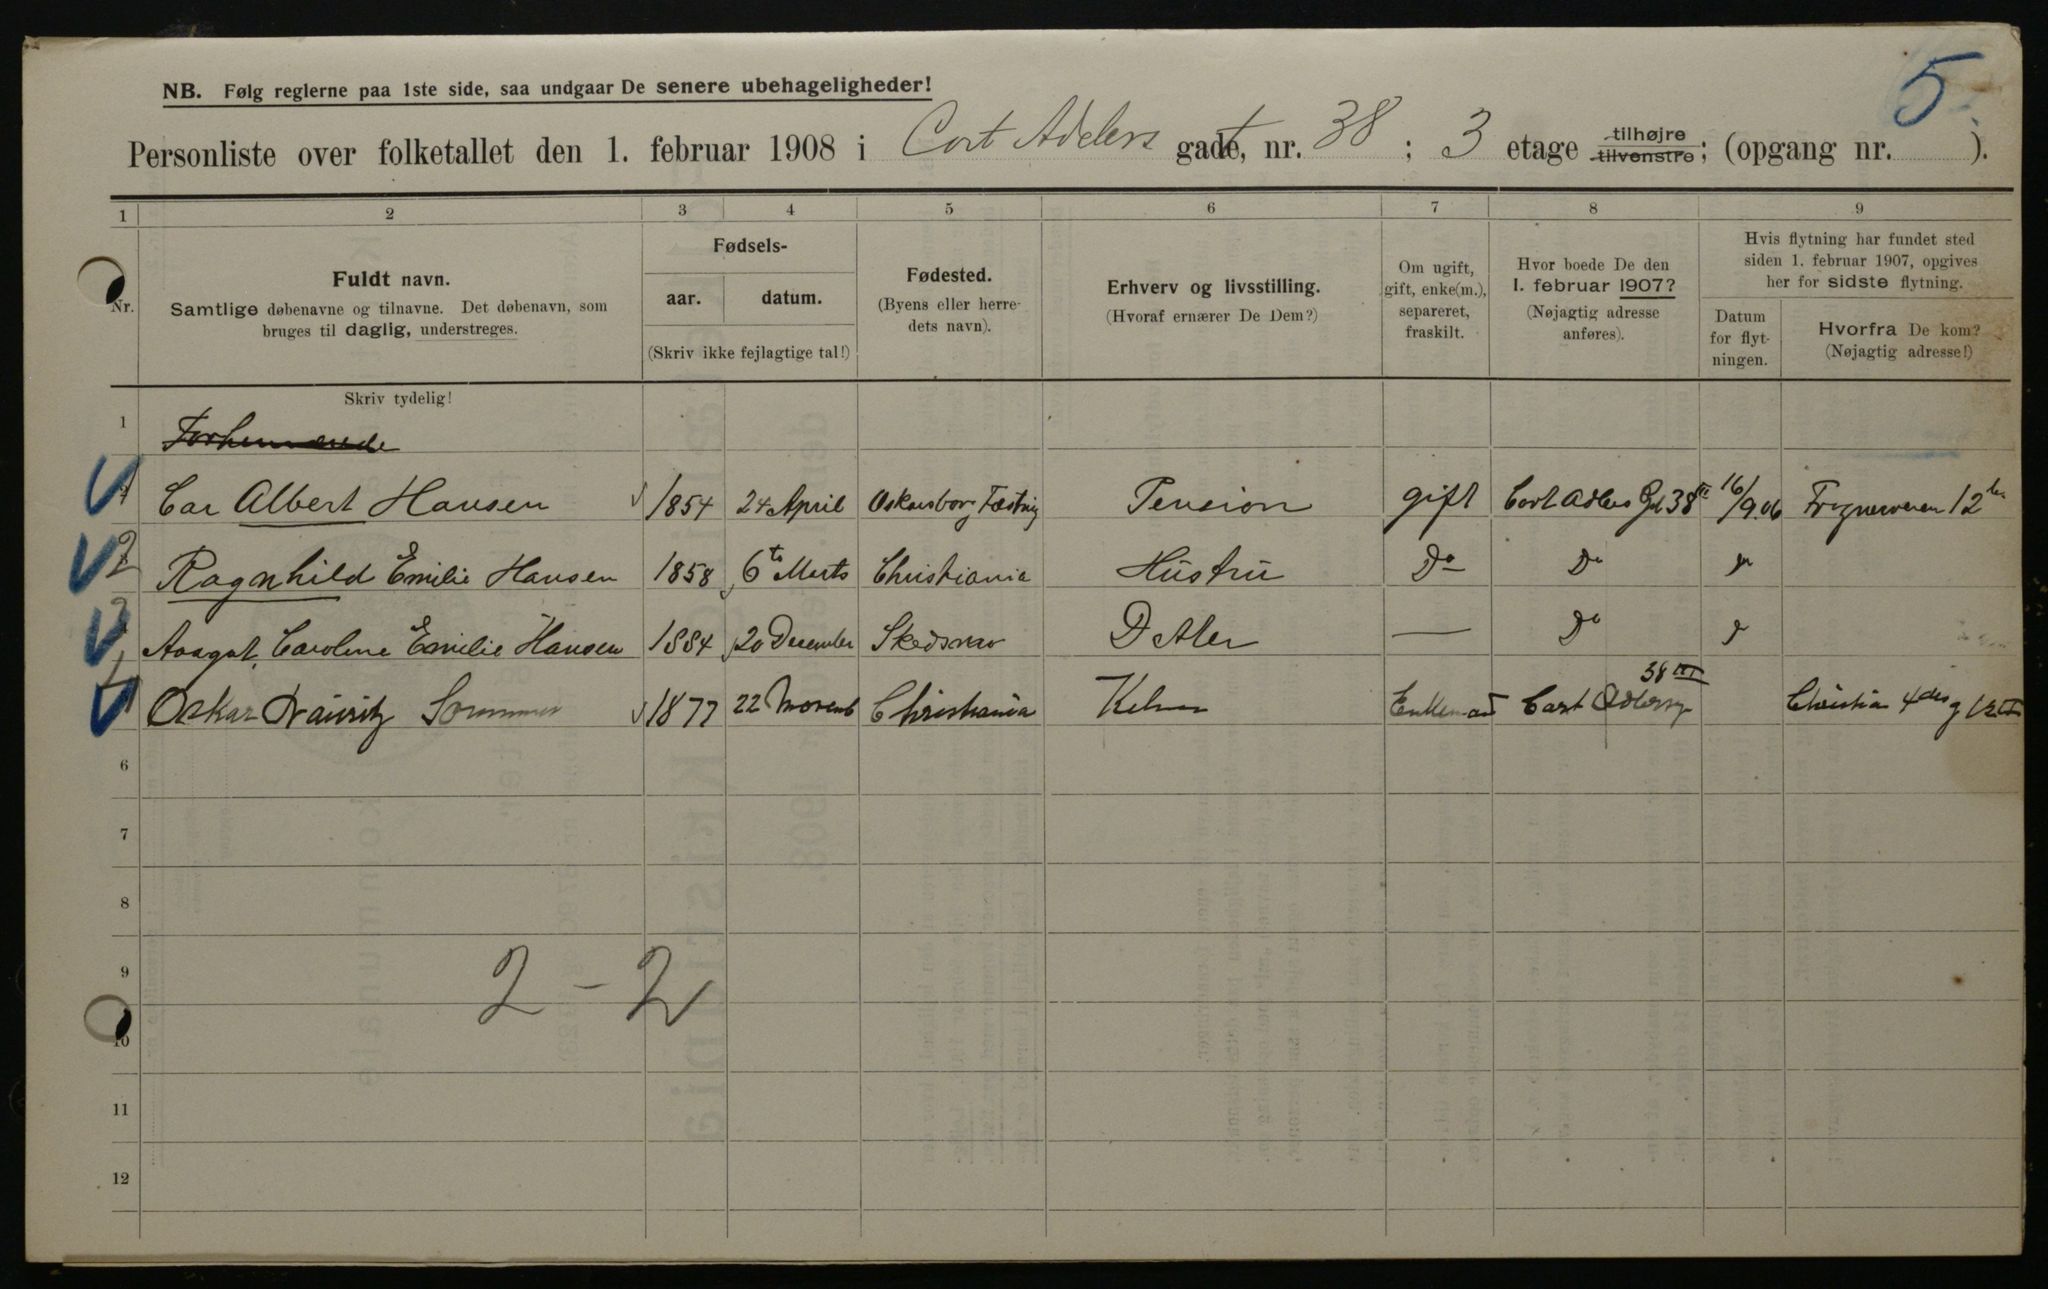 5.
NB. Følg reglerne paa 1ste side, saa undgaar De senere ubehageligheder!
Personliste over folketallet den 1. februar 1908 i Cort Adelers gade, nr. 38 ; 3 etage tilhøjre tilvenstre; (opgang nr. ).
1 2 3 4 5 6 7 8 9
Nr.
Fuldt navn.
Samtlige døbenavne og tilnavne. Det døbenavn, som
bruges til daglig, understreges.
Fødsels-
aar. datum.
(Skriv ikke fejlagtige tal!)
Fødested.
(Byens eller herre-
dets navn).
Erhverv og livsstilling.
(Hvoraf ernærer De Dem?)
Om ugift,
gift, enke(m.),
separeret,
fraskilt.
Hvor boede De den
1. februar 1907?
(Nøjagtig adresse
anføres).
Hvis flytning har fundet sted
siden 1. februar 1907, opgives
her for sidste flytning.
Datum
for flyt-
ningen.
Hvorfra De kom?
(Nøjagtig adresse!)
Skriv tydelig!
1
2 Car Albert Hansen 1854 24 April Oskarsborg Fæstnig Pension gift Cort Adlers Gd 38 III 16/9.06 Frognerveien 12
2 Ragnhild Emilie Hansen 1858 6te Marts Christiania Hustru Do Do
3 Aagot Caroline Emilie Hansen 1884 20 December Skedsmo Datter — Do
4 Oskar Nauritz Sommer 1877 22 Novemb Christiania Kelner Enkemand Cort Adlersg 38 III Christian 4des g 12 II
6
7
8
9
2 – 2
10
11
12